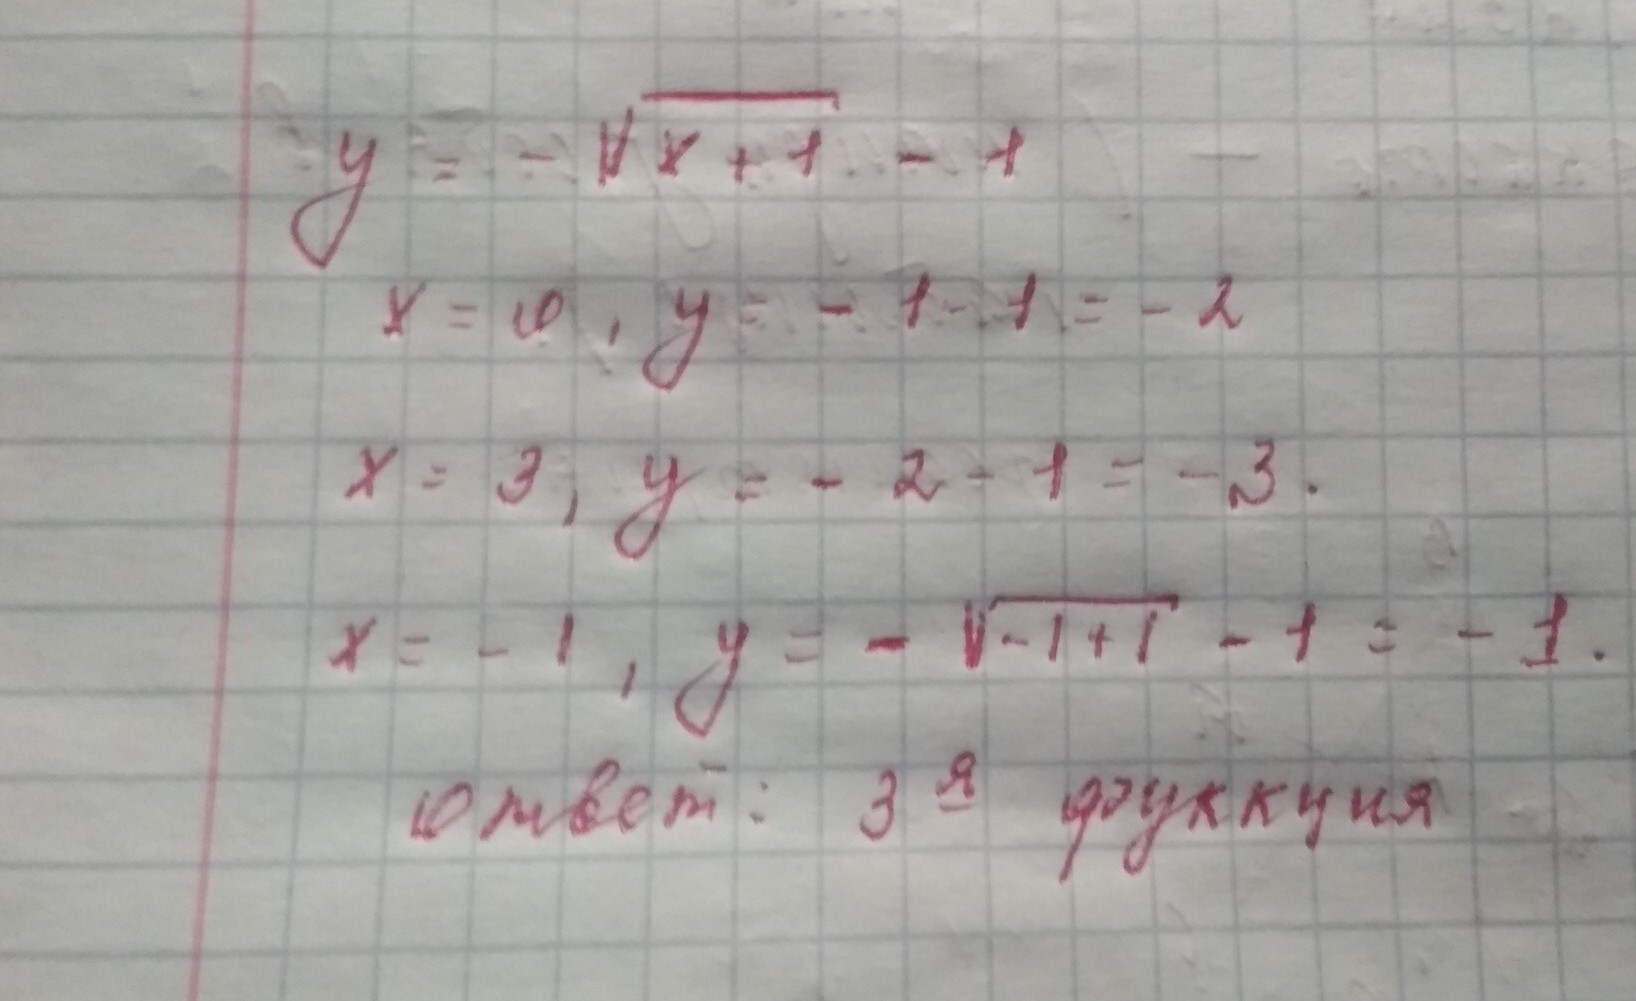 y = - √x + 1 - 1
x = 0, y = - 1 - 1 = - 2
x = 3, y = - 2 - 1 = - 3.
x = - 1, y = - √-1+1 - 1 = - 1.
ответ: 3 я функкция